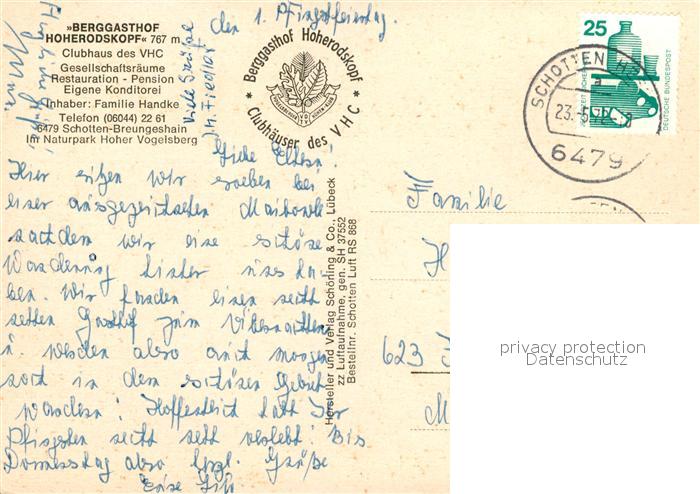 »BERGGASTHOF
HOHERODSKOPF« 767 m
Clubhaus des VHC
Gesellschaftsräume
Restauration - Pension
Eigene Konditorei
Inhaber: Familie Handke
Telefon (06044) 22 61
6479 Schotten-Breungeshain
Im Naturpark Hoher Vogelsberg
* Berggasthof Hoherodskopf *
Clubhäuser des VHC
den 1. Pfingstfeiertag.
viele Grüße
25
DEUTSCHE BUNDESPOST
SCHOTTEN
23.-5.72
6479
Liebe Eltern!
Hier sitzen wir soeben bei
einer ausgezeichneten Mahlzeit
nachdem wir eine schöne
Wanderung hinter uns ha-
ben. Wir fanden einen sehr
netten Gasthof zum Übernachten
u. werden also auch morgen
noch in dem schönen Gebiet
wandern! Hoffentlich habt Ihr
Pfingsten recht nett verlebt! Bis
Donnerstag also herzl. Grüße
Hersteller und Verlag Schöning & Co., Lübeck
zz Luftaufnahme, gen. SH 37552
Bestellnr. Schotten Luft RS 868
Familie
H
623
M
privacy protection
Datenschutz